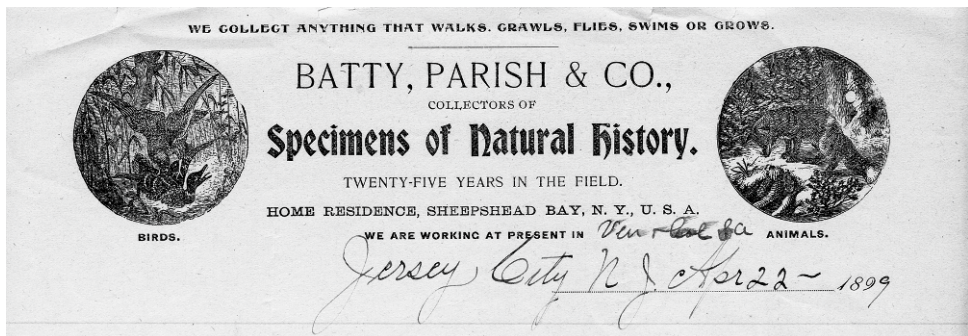 WE COLLECT ANYTHING THAT WALKS. CRAWLS, FLIES, SWIMS OR GROWS.
BATTY, PARISH & CO.,
COLLECTORS OF
Specimens of Natural History.
TWENTY-FIVE YEARS IN THE FIELD.
HOME RESIDENCE, SHEEPSHEAD BAY, N. Y., U. S. A.
BIRDS.
WE ARE WORKING AT PRESENT IN Ven
ANIMALS.
Jersey City N J. Apr 22 - 1899